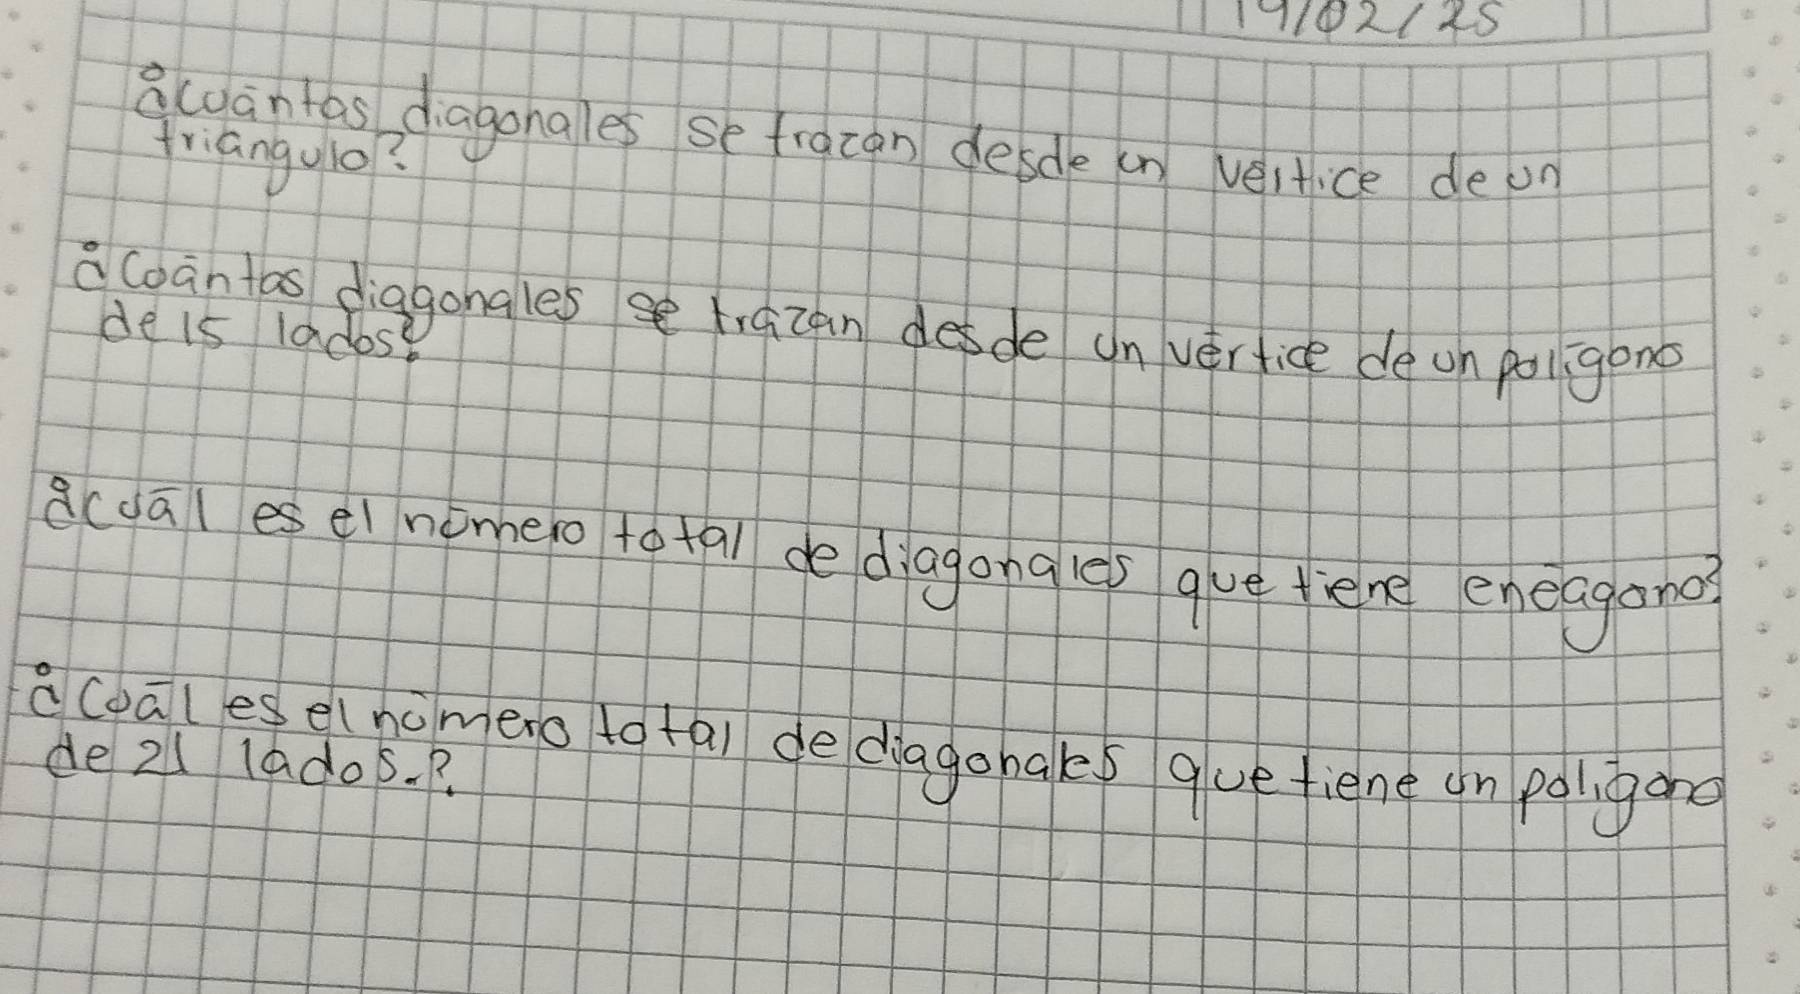 19/02/25
¿cuántas diagonales se trazan desde un vertice de un
triángulo?
¿Cuántas diagonales se trazan desde un vértice de un polígono
de 15 lados?
¿cuál es el número total de diagonales que tiene eneágono?
¿Cuál es el número total de diagonales que tiene un polígono
de 21 lados.?